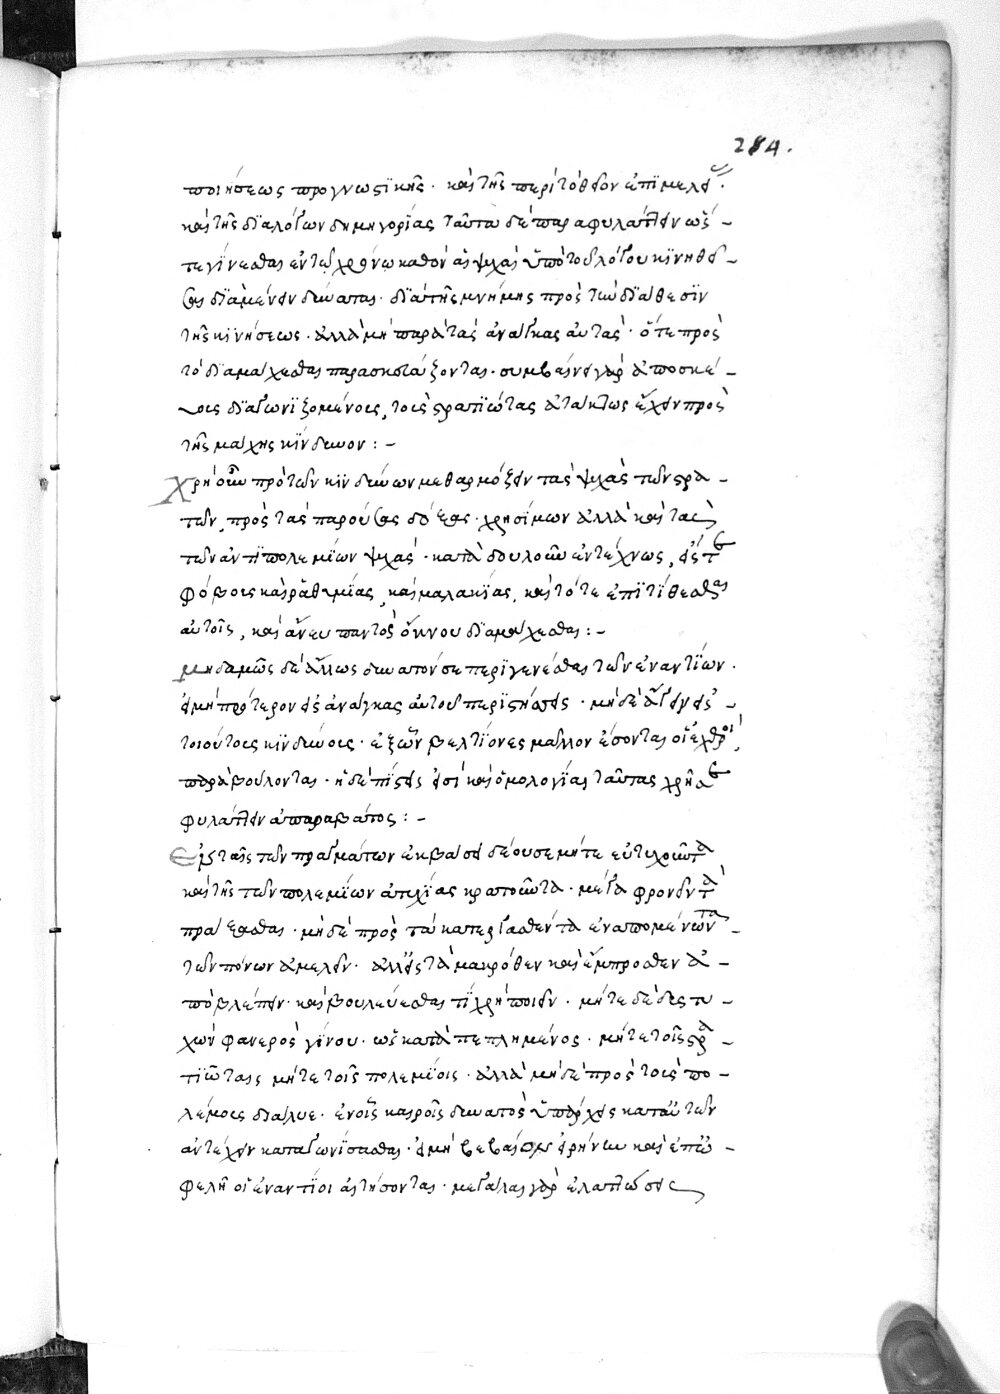 284.
ποιήσεως προγνωστικῆς· καὶ τῆς περὶ τὸ θεῖον ἐπιμελεί
καὶ τῆς διὰ λόγων δημηγορίας ταῦτα δὲ παραφυλάττειν ὥς
τε γίνεσθαι ἐν τῶ χρόνω καθ' ὃν αἱ ψυχαὶ ὑπὸ τοῦ λόγου κινηθεῖ
σαι διαμένειν δύνανται· διὰ τῆς μνήμης πρὸς τὴν διάθεσιν
τῆς κινήσεως· ἀλλὰ μὴ παρὰ τὰς ἀνάγκας αὐτὰς· ὅτε πρὸς
τὸ διαμάχεσθαι παρασκευάζονται· συμβαίνει γὰρ
διαγωνιζομένοις, τοῖς στρατιώταις ἀτάκτως ἔχειν πρὸς
τῆς μάχης κίνδυνον:-
Χρὴ οὖν πρὸ τῶν κινδύνων μεθαρμόζειν τὰς ψυχὰς τῶν στρα
τῶν, πρὸς τὰς παρούσας δόξας· χρησίμων ἀλλὰ καὶ τὰς
τῶν ἀντιπολεμίων ψυχάς· καταδουλοῦν ἐντέχνως, εἴς τε
φόβοις καὶ ῥαθυμίας, καὶ μαλακίας, καὶ τότε ἐπιτίθεσθαι
αὐτοῖς, καὶ ἄνευ παντὸς ὄκνου διαμάχεσθαι:-
Μηδαμῶς δὲ ἄλλως δυνατόν σε περιγενέσθαι τῶν ἐναντίων·
εἰ μὴ πρότερον εἰς ἀνάγκας αὐτοὺς περιστήσεις· μὴ δὲ ἄγειν εἰς
τοιούτοις κινδύνοις· ἐξ ὧν βελτίονες μᾶλλον ἔσονται οἱ ἐχθροί,
παραβούλονται· ἡ δὲ πίστεις εἰσὶ καὶ ὁμολογίας ταύτας χρή σε
φυλάττειν ἀπαραβάτος:-
Εἰς ταῖς τῶν πραγμάτων ἐκβάσει δέον σε μήτε εὐτυχοῦντα
καὶ τῆς τῶν πολεμίων ἀτυχίας κρατοῦντα· μέγα φρονοῦντα
πράξασθαι· μὴ δὲ πρὸς τὰ κατεργασθέντα ἐναπομένοντα
τῶν πόνων ἀμελεῖν· ἀλλ' εἰς τὰ μακρόθεν καὶ ἔμπροσθεν ἀ
πόβλέπειν· καὶ βουλεύεσθαι τί χρὴ ποιεῖν· μήτε δὲ δεστυ
χῶν φανερὸς γίνου· ὡς καταπεπλημένος· μήτε τοῖς στρα
τιῶταις μήτε τοῖς πολεμίοις· ἀλλὰ μὴ δὲ πρὸς τοὺς πο
λέμοις διάλυε· ἐν οἷς καιροῖς δυνατὸς ὑπάρχεις κατὰ τῶν
ἀντέχειν καταγωνίσασθαι· εἰ μὴ βεβαίαν εἰρήνην καὶ ἐπω
φελῆ οἱ ἐναντίοι αἰτήσονται· μεγάλας γὰρ ἐλαττώσεις